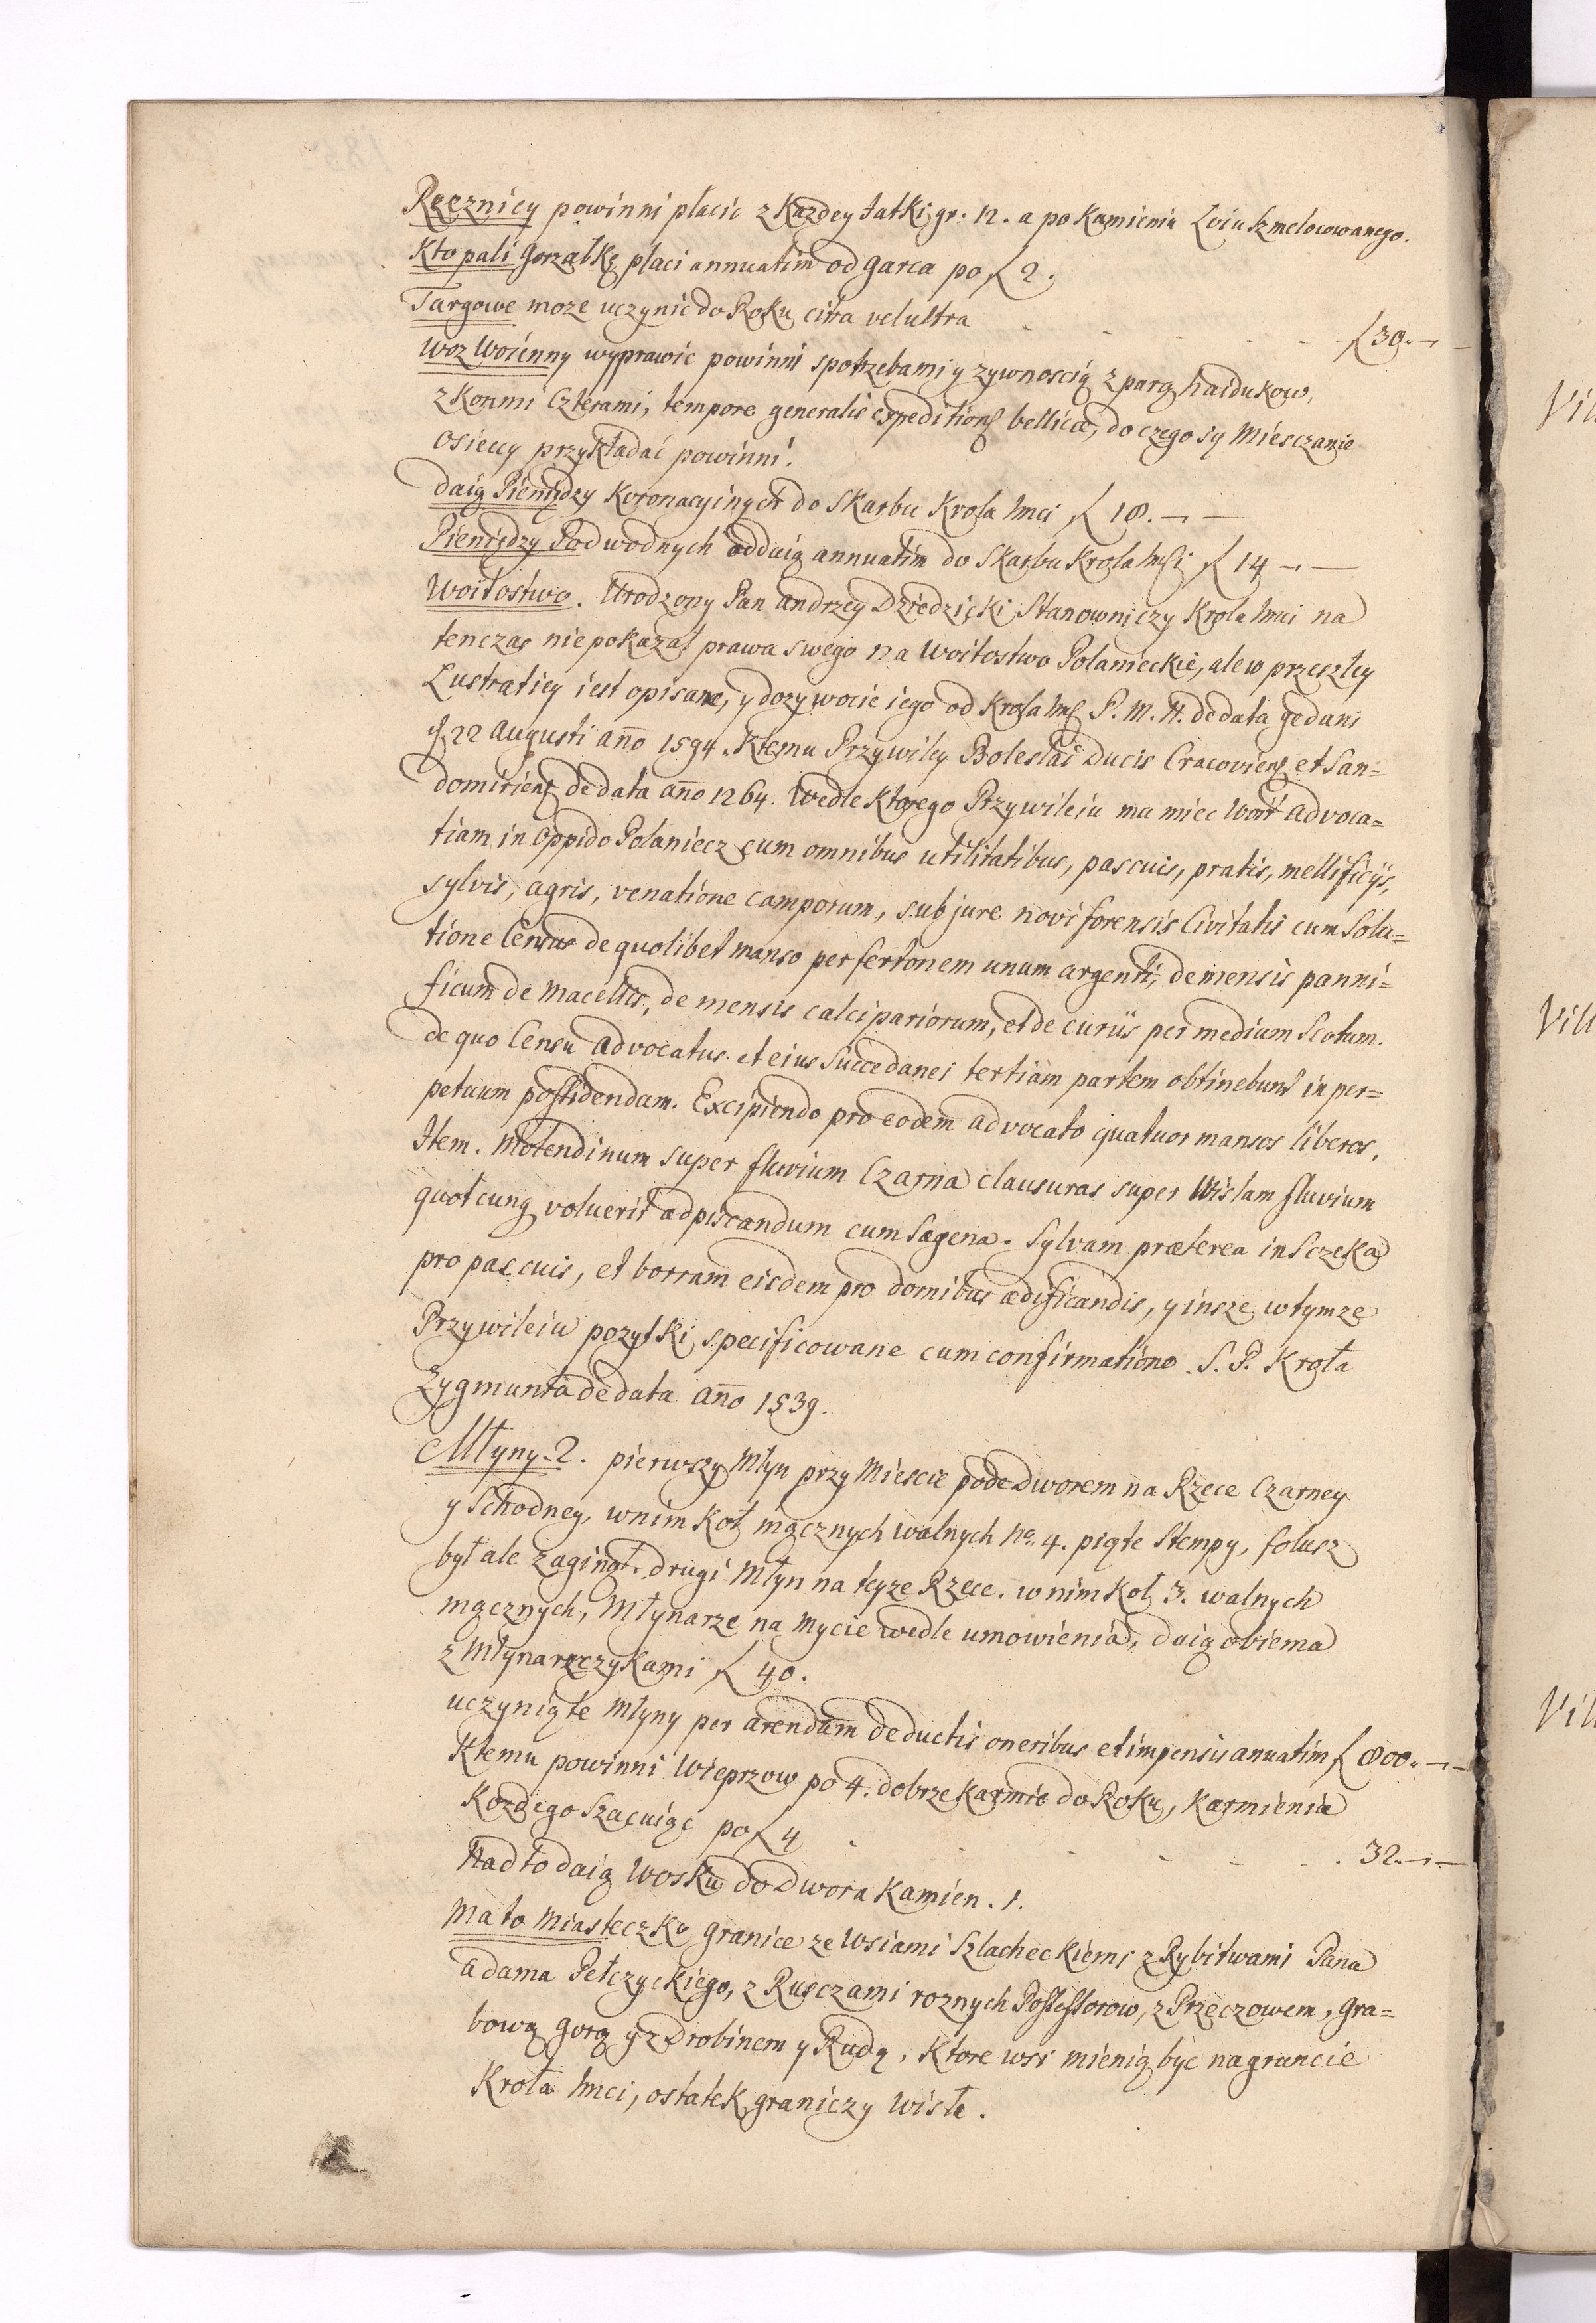 Rzeznicy powinni płacic z Kazdey Jatki gr: 12. a po Kamieniu Łoiu szmelcowanego.
Kto pali Gorzałkę płaci annuatim od garca po ƒ 2.
Targowe moze uczynic do Roku citra vel ultra ƒ 30.
Woz Woienny wyprawic powinni s potrzebami y zywnoscią z parą haidukow,
z Konmi czterami, tempore generalis expeditionis bellicæ, do czego sy Miesczanie
Osieccy przykładać powinni.
daią Pieniędzy Koronacyinych do Skarbu Krola Jmci ƒ 18.
Pieniędzy Podwodnych oddaią annuatim do Skarbu Krola JMsi ƒ 14
Woitostwo. Urodzony Pan Andrzey Dziedzicki Stanowniczy Krola Jmci na
tenczas nie pokazał prawa swego na Woitostwo Polanieckie, ale w przeszłey
Lustratiey iest opisane, y dozywocie iego od Krola Jmsci P. M. N. de data gedani
22 Augusti año 1594. Ktemu Przywiley Boleslai Ducis Cracoviens et San=
domiriens de data año 1264. Wedle Ktorego Przywileiu ma miec Woit advoca=
tiam in Oppido Polaniecz cum omnibus utilitatibus, pascuis, pratis, mellificijs,
sylvis, agris, venatione camporum, sub jure novi forensis Civitatis cum Solu=
tione Census de quolibet manso per fertonem unum argenti, de mensis panni=
ficum de Macellis, de mensis calcipariorum, et de curiis per medium Scotum.
de quo Censu advocatus et eius Succedanei tertiam partem obtinebunt in per=
petuum possidendam. Excipiendo pro eodem advocato quatuor mansos liberos,
Item. Molendinum super fluvium Czarna clausuras super Wislam fluvium
quotcunq voluerit ad piscandum cum Sagena. Sylvam præterea in Sczeka
pro pascuis, et borram eisdem pro domibus ædificandis, y insze w tymze
Przywileiu pozytki specificowane cum confirmatione S. P. Krola
Zygmunta de data año 1539.
Młyny 2. pierwszy Młyn przy Miescie pode Dworem na Rzece Czarney
y Schodney, w nim Koł mącznych walnych No. 4. piąte Stempy, folusz
był ale zaginął. drugi Młyn na teyze Rzece. w nim Koł 3. walnych
mącznych, Młynarze na Mycie wedle umowienia, daią obiema
z Młynarczykami ƒ 40.
uczynią te Młyny per arendam deductis oneribus et impensis anuatim ƒ 800.
Ktemu powinni Wieprzow po 4. dobrze Karmic do Roku, Karmienia
Kozdego szacuiąc po ƒ 4 32.
Nad to daią Wosku do Dwora Kamien. 1.
Ma to Miasteczko granice ze Wsiami Szlacheckiemi z Rybitwami Pana
Adama Pełczyckiego, z Rusczami roznych Possessorow, z Przeczowem, Gra=
bową gorą y z Drobinem y Rudą, Ktore wsi mienią być na gruncie
Krola Jmci, ostatek graniczy Wisłe.
Vil
Vill
Vill